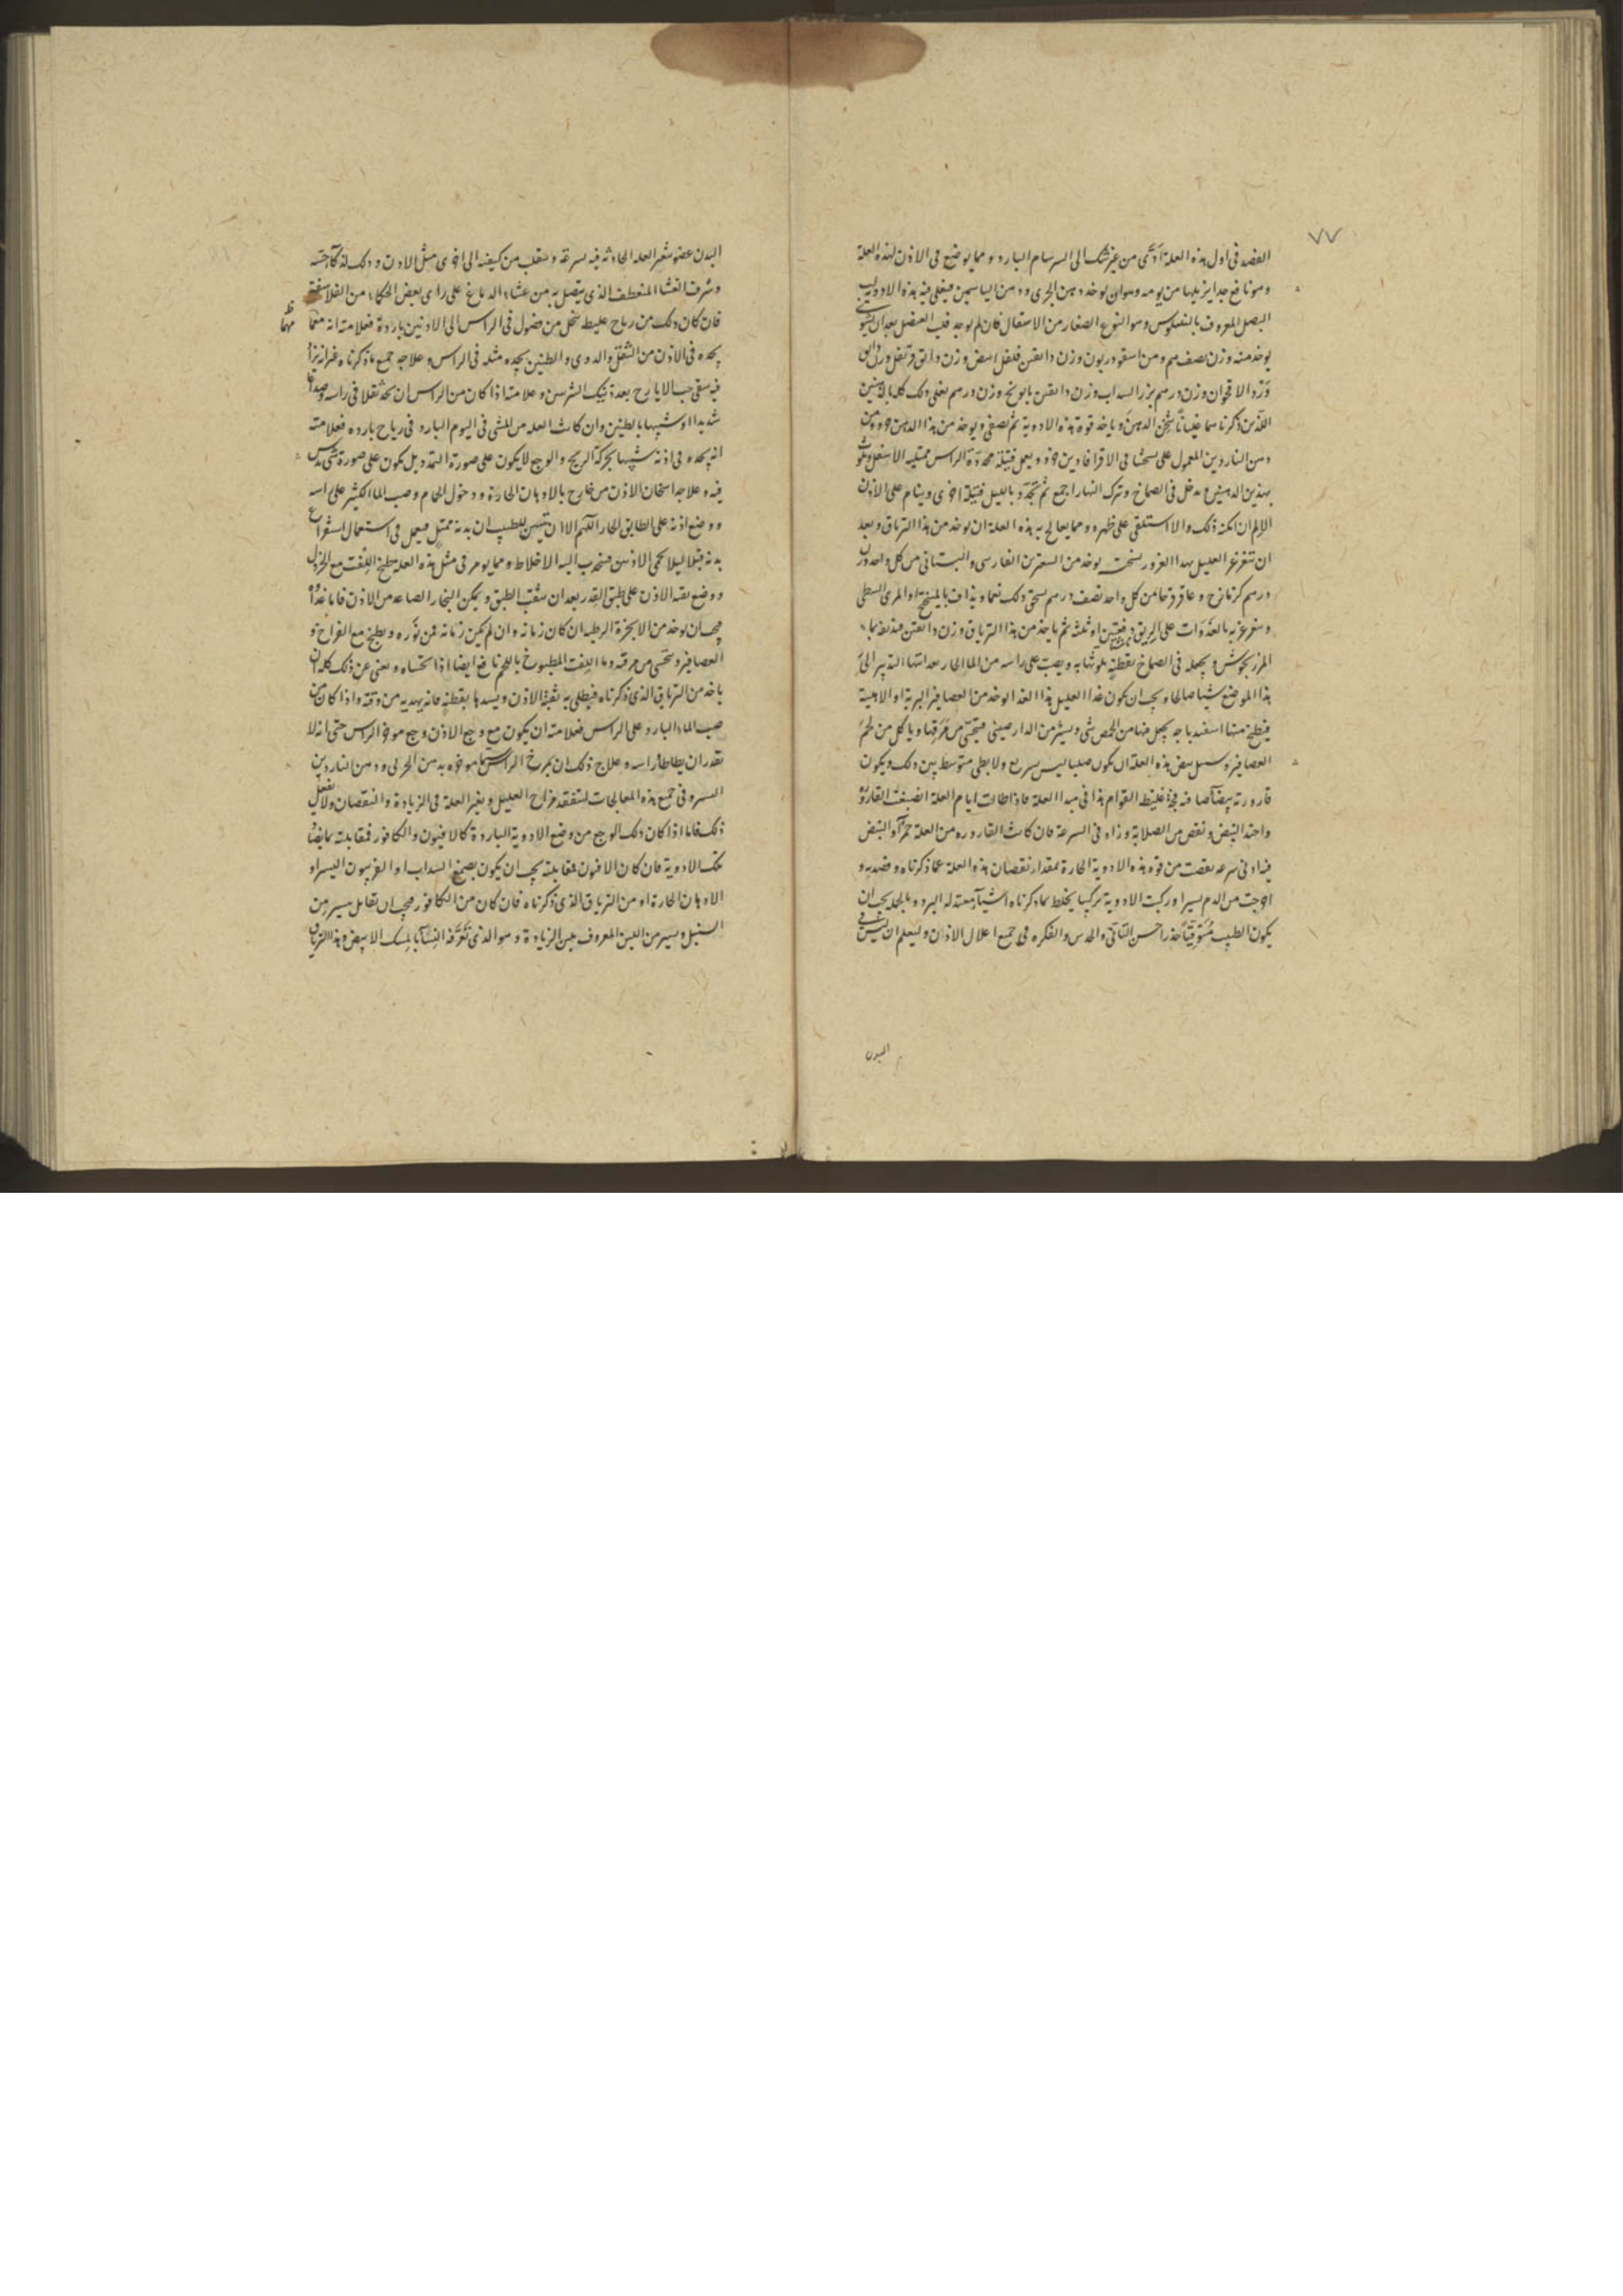 ٧٧
الفصد فى اول هذه العلة ادّى من غير شك الى السرسام البارد ومما يوضع فى الاذن لهذه العلة
وهو نافع جدا يزيلها من يومه وهو ان يوخذ دهن الخيرى ودهن الياسمين فيغلى فيه هذه الادوية لب
البصل المعروف وهو النوع الصغار من الاسقال فان لم يوجد قلب العنصل بعد ان يشوى
يوخذ منه وزن نصف درهم ومن وزن دانقين فلفل ابيض وزن دانق قرنفل وزن دانق
وَرْد الاقحوان وزن درهم بزر السداب وزن دانقين بابونج وزن درهم يغلى ذلك كله بالدهنين
اللذين ذكرناهما غلياناً الدهن وياخذ قوة هذه الادوية ثم يصفى ويوخذ من هذا الدهن جزو ومن
دهن الناردين المعمول على نسختنا فى الاقرابادين جزو ويعمل فتيلة محددة الراس ممتليه الاسفل ويلوث
بهذين الدهنين ويدخل فى الصماخ ويترك النهار اجمع ثم تجدّد بالليل فتيلة اخرى وينام على الاذن
الالم ان امكنه ذلك والا استلقى على ظهره ومما يعالج به هذه العلة ان يوخذ من هذا الترياق وبعد
ان تتغرغر العليل بهذا الغرور نسخته يوخذ من السعترين الفارسى والبستانى من كل واحد وزن
درهم كزمازج وعاقرقرحا من كل واحد نصف درهم يسحق ذلك نعما ويذاف بالميبختج او المرى النبطى
ويتغرغر به بالغدوات على الريق دفعتين او ثلثه ثم ياخذ من هذا الترياق وزن دانقين فيذيفه بماء
المرزنجوش ويجعله فى الصماخ بقطنةٍ يلوثها به ويصبّ على راسه من الماء الحار بعد انتهاء التدبير الى
هذا الموضع شيئا صالحا ويجب ان يكون غذا العليل هذا الغذا يوخذ من العصافير البرية او الاهلية
فيطبخ منها اسفيدباجه يجعل فيها من الحمص شى ويسير من الدارصينى فيتحسّى من مرقها وياكل من لحم
العصافير وسبيل نبض هذه العلة ان يكون صلبا ليس بسريع ولا بطى متوسط بين ذلك ويكون
قارورته بيضاً صافيه غليظ القوام هذا فى مبدا العلة فاذا طالت ايام العلة انصبغت القارورة
واحتد النبض ونقص من الصلابة وزاد فى السرعة فان كانت القارورة من العلة حمراً والنبض
فيه ادنى سرعه نقصت من قوة هذه الادوية الحارة بمقدار نقصان هذه العلة عما ذكرناه وفصدته و
اخرجت من الدم يسيرا وركبت الادوية تركيبا يخلط بما ذكرناه اشياً معتدله البرد وبالجمله يجب ان
يكون الطبيب متوقياً حذرا حسن التأتّى والحدس والفكره فى جميع اعلال الاذان وليعلم ان ليس فى
البدن
البدن عضو تتغير العله الحادثه فيه بسرعة وينقلب من كيفيه الى اخرى مثل الاذن وذلك لذكاء حسّه
وشرف الغشا المنعطف الذى يتصل به من غشاء الدماغ على راى بعض الحكماء من الفلاسفة
فان كان ذلك من رياح غليظ تنحل من فضول فى الراس الى الاذنين باردة فعلامته انه مهما
يجده فى الاذن من الثقل والدوى والطنين يجده مثله فى الراس وعلاجه جميع ما ذكرناه غير انه يزاد
فيه سقى حب الايارج بعدة تيك الشربتين وعلامته اذا كان من الراس ان يجد ثقلا فى راسه وصداعا
شديدا او شبيها بالطنين وان كانت العله من المشى فى اليوم البارد فى رياح بارده فعلامته
انه يجده فى اذنه شبيها بحركة الريح والوجع لا يكون على صورة التمدد بل يكون على صورة شى يدس
فيه وعلاجه اسخان الاذن من خارج بالادهان الحارة ودخول الحمام وصب الماء الكثير على راسه
ووضع اذنه على الطابق الحار اللهم الا ان يتبين للطبيب ان بدنه ممتلٍ فيعمل فى استعمال استفراغ
بدنه قبلا ليلا تحمى الاذنين فينجذب اليه الاخلاط ومما يومر فى مثل هذه العلة بطبخ اللِفْت مع الخردل
ووضع ثقبة الاذن على طبق القدر بعد ان يثقب الطبق ويكن البخار الصاعد من الاذن فاما غذاوه
فيجب ان يوخذ من الابخرة الرطبه ان كان زمانه وان لم يكن زمانه فمن بزره ويطبخ مع الفراخ و
العصافير ويتحسى من مرقته وماء اللفت المطبوخ باللحم نافع ايضا اذا تحساه ويغنى عن ذلك كله ان
ياخذ من الترياق الذى ذكرناه فيطلى به ثقبة الاذن ويسدها بقطنةٍ فانه يهديه من وقته واذا كان من
صب الماء البارد على الراس فعلامته ان يكون مع وجع الاذن وجع موخر الراس حتى انه لا
يقدر ان يطاطى راسه وعلاج ذلك ان يمرخ الراس سيما موخره بدهن الخيرى ودهن الناردين
اليسير وفى جميع هذه المعالجات لتتفقد مزاج العليل وتغير العلة فى الزيادة والنقصان ولا يغفل
ذلك فاما اذا كان ذلك الوجع من وضع الادوية الباردة كالافيون والكافور فمقابلته بما يضاد
تلك الادوية فان كان الافيون فمقابلته يجب ان يكون بصمغ السداب او الفربيون اليسير او
الادهان الحارة او من الترياق الذى ذكرناه فان كان من الكافور فيجب ان تقابل بيسير من
السنبل ويسير من اللبن المعروف بلبن الزيادة وهو الذى تَعْرفه النساء بالمسك الابيض وهذا الترياق
مهما